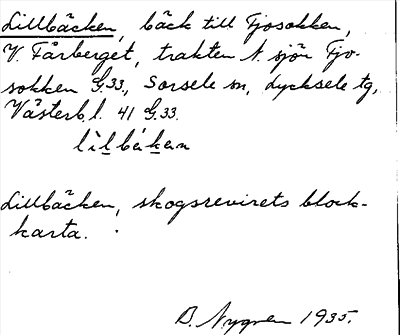 Lillbäcken, bäck till Tjosokken,
V. Fårberget, trakten N. sjön Tjo-
sokken G33, Sorsele sn, Lycksele tg,
Västerb. l. 41 G33.
lìlbäkan
Lillbäcken, skogsrevirets block-
karta.
B. Nygren 1935.